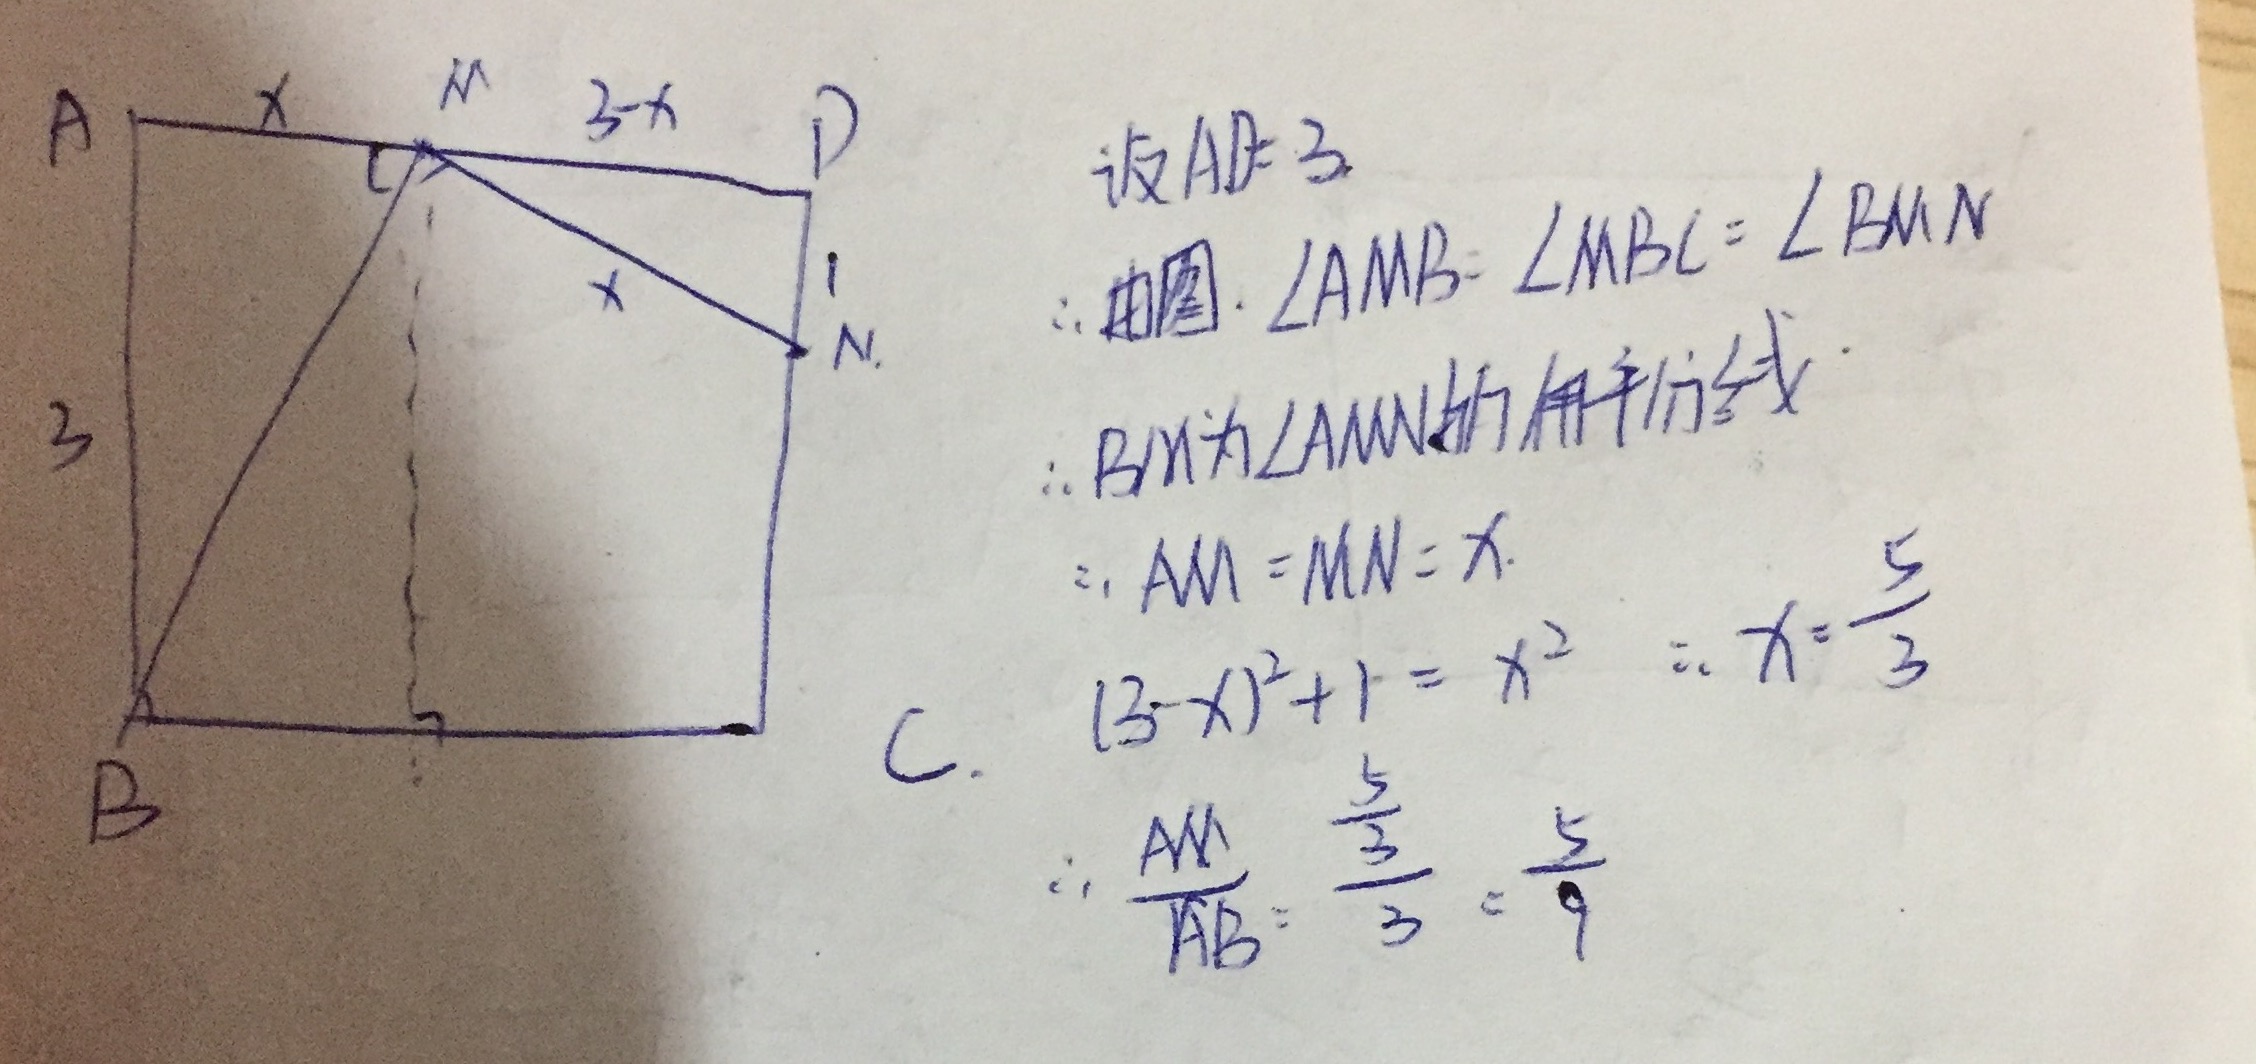 A x M 3-x D
1
x
N.
3
B
C.
设AD=3.
∴由图. ∠AMB=∠MBC=∠BMN
∴BM为∠AMN的角平分线.
∴AM=MN=x.
(3-x)²+1=x² ∴x=5/3
∴AM/AB=(5/3)/3=5/9